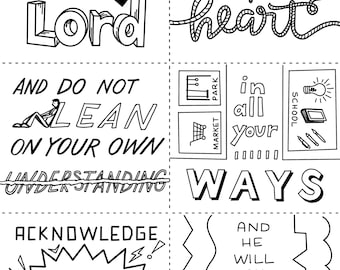 Lord
heart
AND DO NOT
LEAN
ON YOUR OWN
UNDERSTANDING
PARK
MARKET
in
all
your
SCHOOL
WAYS
ACKNOWLEDGE
AND
HE
WILL